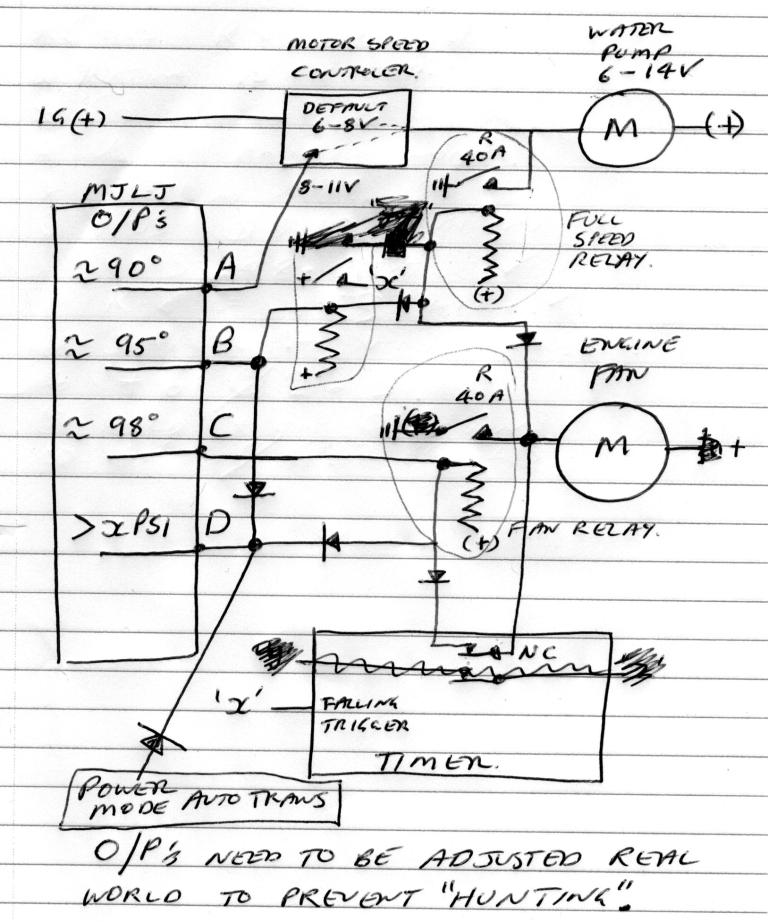 WATER
PUMP
6-14V
MOTOR SPEED
CONTROLER.
DEFAULT
6-8V
IG(+)
M
(+)
R
40A
8-11V
MJLJ
O/P's
≈ 90° A
FULL
SPEED
RELAY.
+
'x'
(+)
≈ 95° B
+
ENGINE
FAN
R
40A
≈ 98° C
M
+
> xPSI D
(+)
FAN RELAY.
NC
'x'
FALLING
TRIGGER
TIMER.
POWER
MODE AUTO TRANS
O/P's NEED TO BE ADJUSTED REAL
WORLD TO PREVENT "HUNTING".